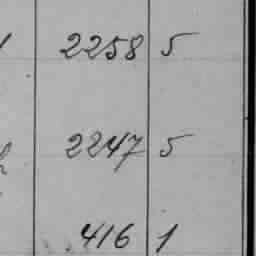 2258 5
2247 5
416 1